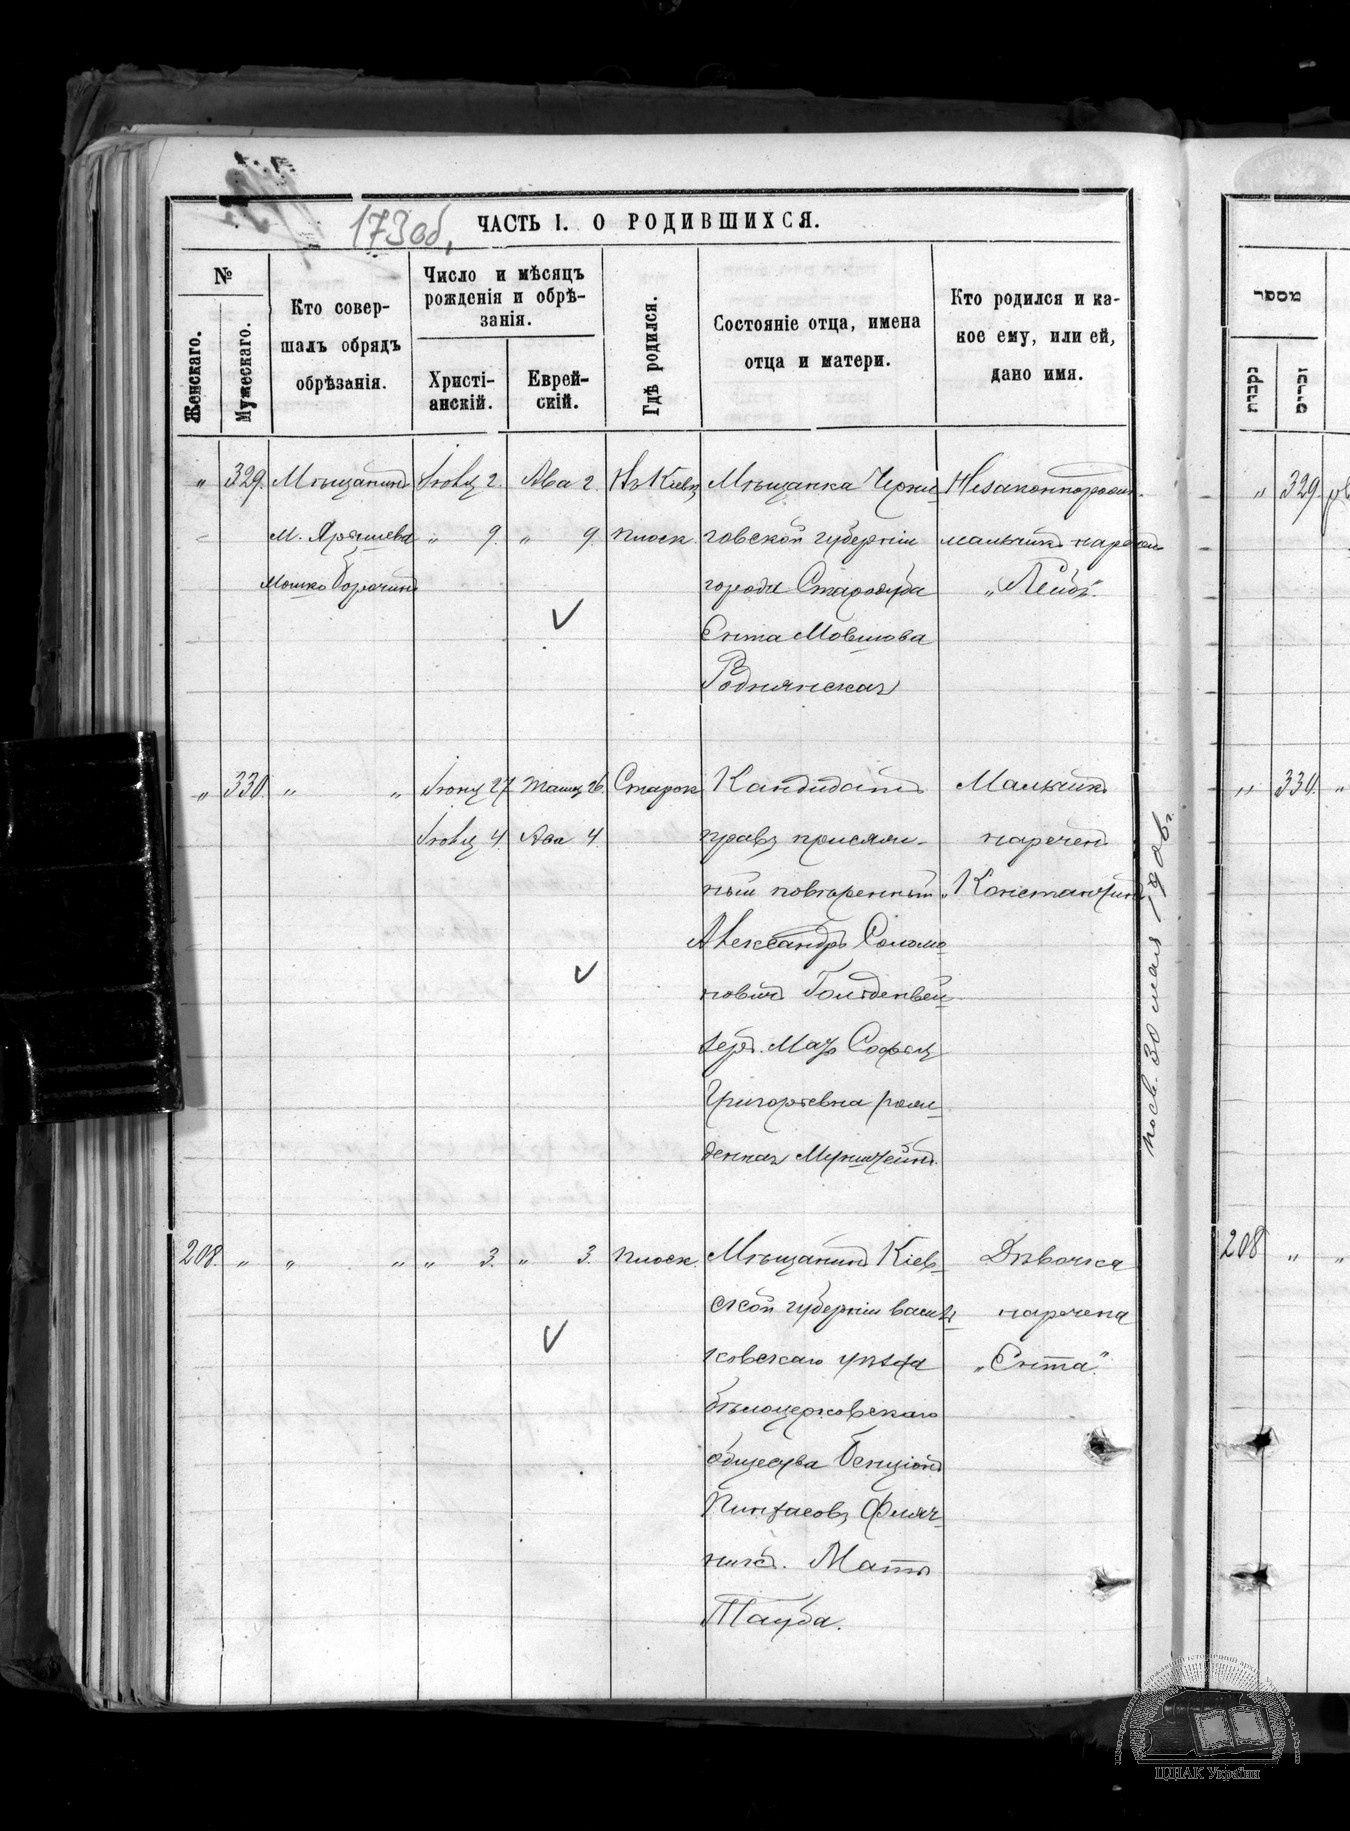 173 об,
ЧАСТЬ I. О РОДИВШИХСЯ.
№
Женскаго.
Мужескаго.
Кто совер-
шалъ обрядъ
обрѣзанія.
Число и мѣсяцъ
рожденія и обрѣ-
занія.
Христі-
анскій.
Еврей-
скій.
Гдѣ родился.
Состояніе отца, имена
отца и матери.
Кто родился и ка-
кое ему, или ей,
дано имя.
" 329. Мѣщанинъ Іюля 2. Ава 2. Въ Кіевѣ Мѣщанка Черни-
говской губерніи
города Стародуба
Ента Мовшова
Роднянская
м. " 9. " 9. плоск.
Мошко
Незаконнорожд.
мальчикъ нареченъ
„Лейбъ“.
" 330. " " Іюня 27 Тамуз 26. Старок. Кандидатъ
Іюля 4. Ава 4.
правъ присяж-
ный повѣренный
Александръ Соломо-
новичъ Гольденвей-
зеръ. Мать Софья
Григорьевна рож-
денная Мунштейнъ.
Мальчикъ
нареченъ
„Константинъ
208. " " " " 3. " 3. плоск. Мѣщанинъ Кіев-
ской губерніи Василь-
ковскаго уѣзда
бѣлоцерковскаго
общества Бенціонъ
Пинхасовъ Фляч-
никъ. Мать
Тауба.
Дѣвочка
наречена
„Ента“.
30 мая 1906 г.
מספר
נקבות
זכרים
" 329.
" 330. "
208 " "
ЦДІАК України